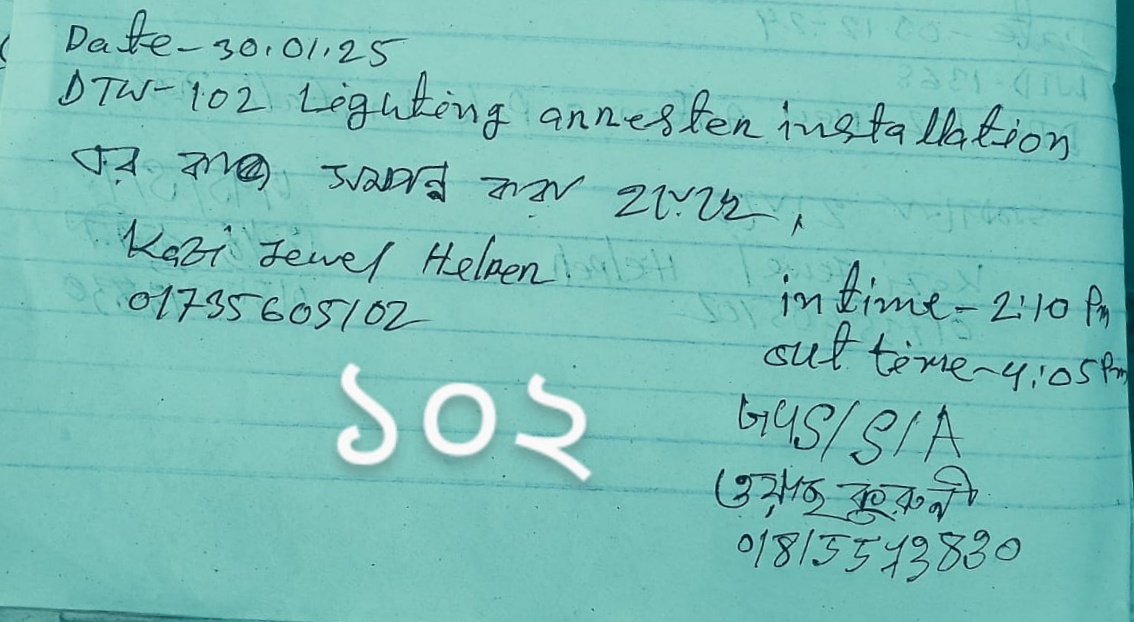 Date-30.01.25
DTW-102 Lighting arrester installation
এর কাজ সম্পন্ন করা হয়েছে,
Kazi Jewel Helper
01735605102
in time-2:10 Pm
out time-4:05 Pm
/S/A
01815573830
১০২